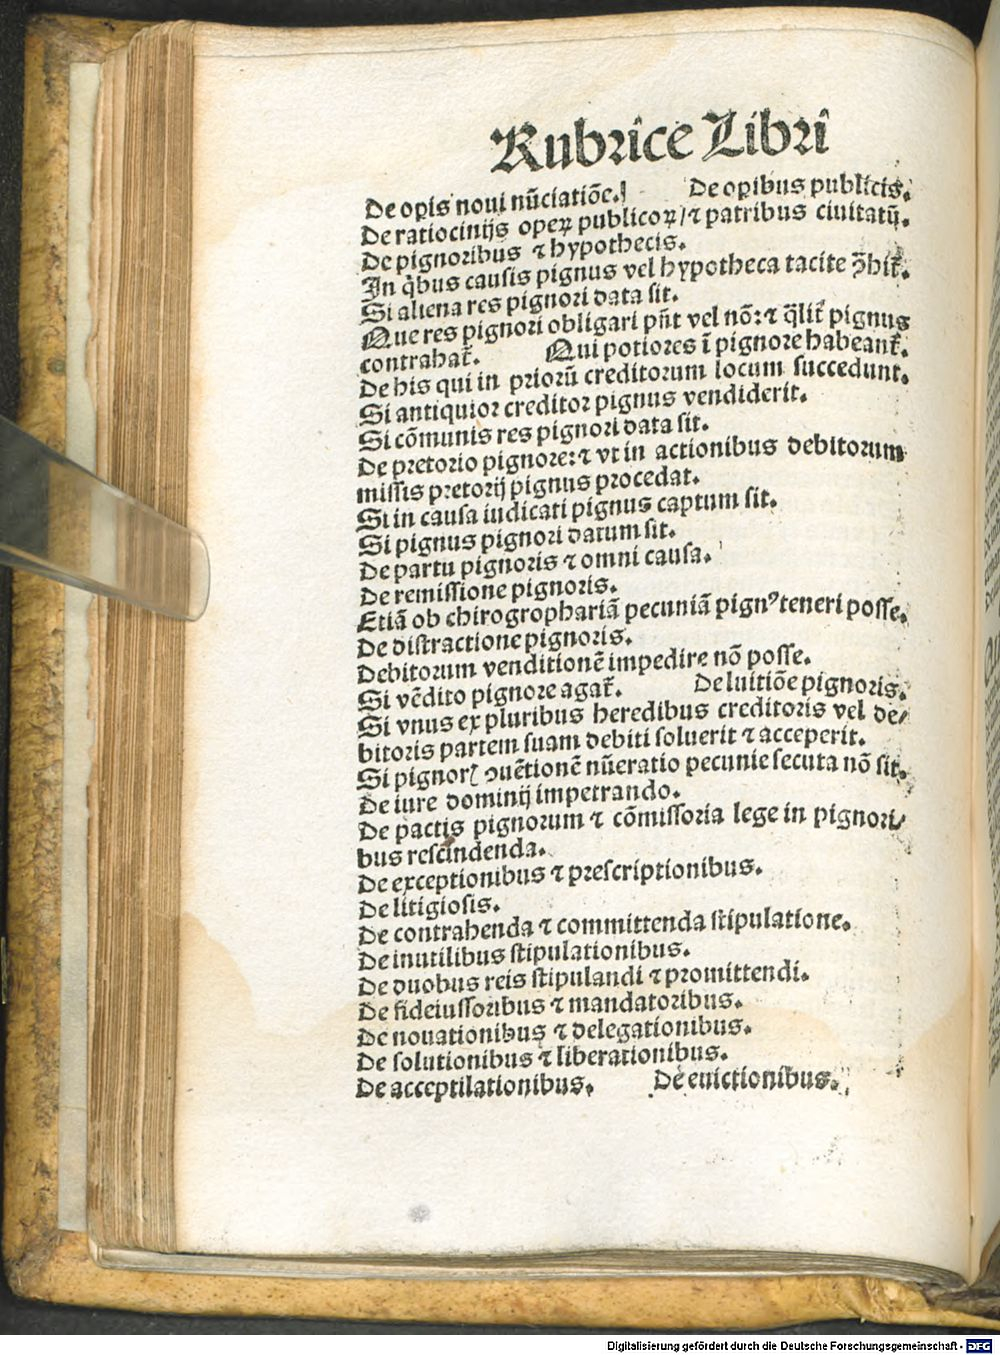 Rubrice Libri
De opis noui nũciatiõe. De opibus publicis.
De ratiocinijs opeꝝ publicoꝝ/ ⁊ patribus ciuitatũ.
De pignoribus ⁊ hypothecis.
In q̃bus causis pignus vel hypotheca tacite ꝯ̃hit̃.
Si aliena res pignori data sit.
Que res pignori obligari pñt vel nõ: ⁊ q̃lit̃ pignus
contrahat̃. Qui potiores ĩ pignore habeant̃.
De his qui in priorũ creditorum locum succedunt.
Si antiquior creditor pignus vendiderit.
Si cõmunis res pignori data sit.
De pretorio pignore: ⁊ vt in actionibus debitorum
missis pretorij pignus procedat.
Si in causa iudicati pignus captum sit.
Si pignus pignori datum sit.
De partu pignoris ⁊ omni causa.
De remissione pignoris.
Etiã ob chirogrophariã pecuniã pignꝰ teneri posse.
De distractione pignoris.
Debitorum venditionẽ impedire nõ posse.
Si vẽdito pignore agat̃. De luitiõe pignoris.
Si vnus ex pluribus heredibus creditoris vel de/
bitoris partem suam debiti soluerit ⁊ acceperit.
Si pignorꝭ ꝯuẽtionẽ nũeratio pecunie secuta nõ sit.
De iure dominij impetrando.
De pactis pignorum ⁊ cõmissoria lege in pignori/
bus rescindenda.
De exceptionibus ⁊ prescriptionibus.
De litigiosis.
De contrahenda ⁊ committenda stipulatione.
De inutilibus stipulationibus.
De duobus reis stipulandi ⁊ promittendi.
De fideiussoribus ⁊ mandatoribus.
De nouationibus ⁊ delegationibus.
De solutionibus ⁊ liberationibus.
De acceptilationibus. De euictionibus.
Digitalisierung gefördert durch die Deutsche Forschungsgemeinschaft - DFG